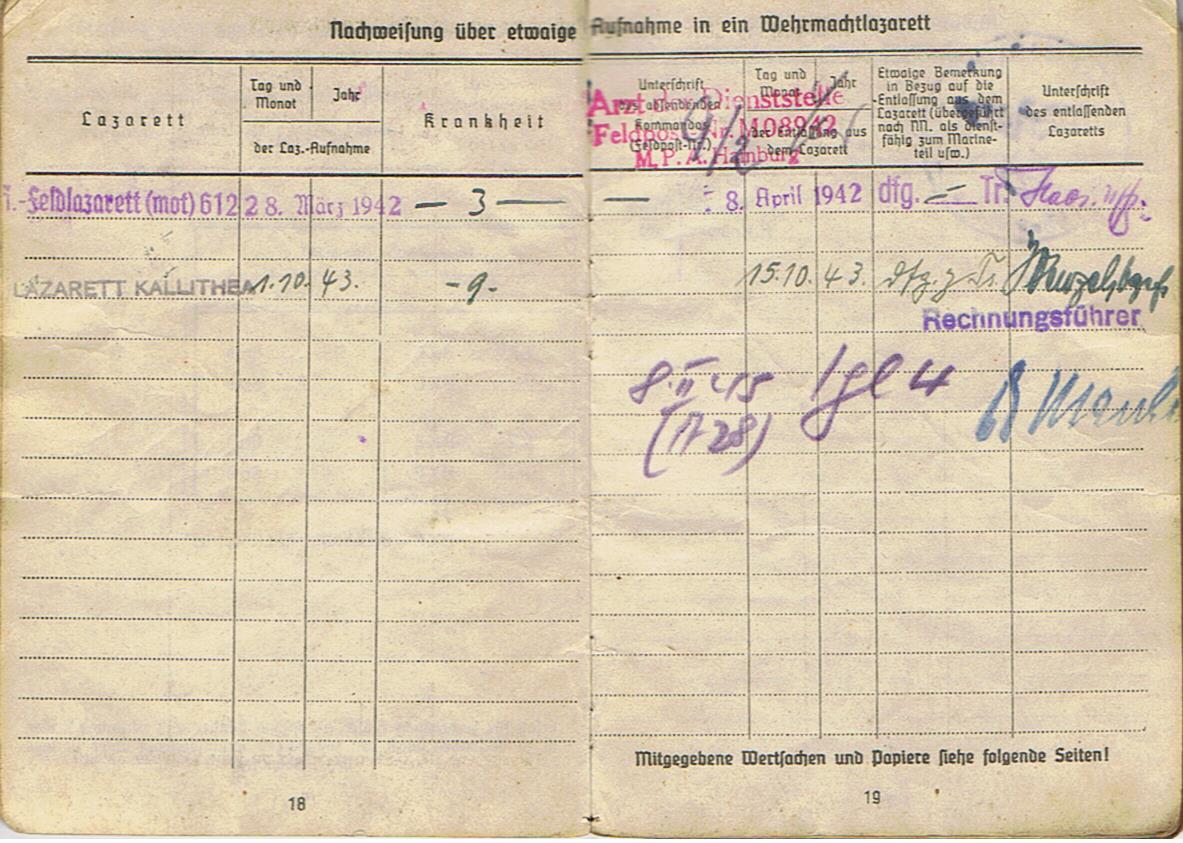 Nachweisung über etwaige Aufnahme in ein Wehrmachtlazarett
Lazarett
Tag und Monat
Jahr
der Laz.-Aufnahme
Krankheit
Unterschrift
des absendenden
Kommandos
(Feldpost-Nr.)
Tag und Monat
Jahr
der Entlassung aus
dem Lazarett
Etwaige Bemerkung
in Bezug auf die
Entlassung aus dem
Lazarett (übergeführt
nach NN. als dienst-
fähig zum Marine-
teil usw.)
Unterschrift
des entlassenden
Lazaretts
Arzt Dienststelle
Feldpost Nr. M08942
M. P. A. Hamburg
-Feldlazarett (mot) 612 28. März 1942 — 3 — — 8. April 1942 dfg. — Tr.
LAZARETT KALLITHEA 1.10. 43. -9. 15.10. 43. dfg. z. Tr.
Rechnungsführer
8.II 45
Mitgegebene Wertsachen und Papiere siehe folgende Seiten!
18
19